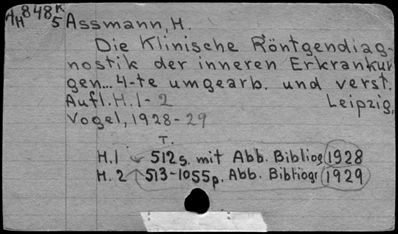 AH 848 K/5 Assmann, H.
Die Klinische Röntgendiag-
nostik der inneren Erkrankun
gen... 4-te umgearb. und verst.
Aufl. H.1-2 Leipzig,
Vogel, 1928-29
T.
H.1 512s. mit Abb. Bibliog 1928
H.2 513-1055p. Abb. Bibliogr 1929